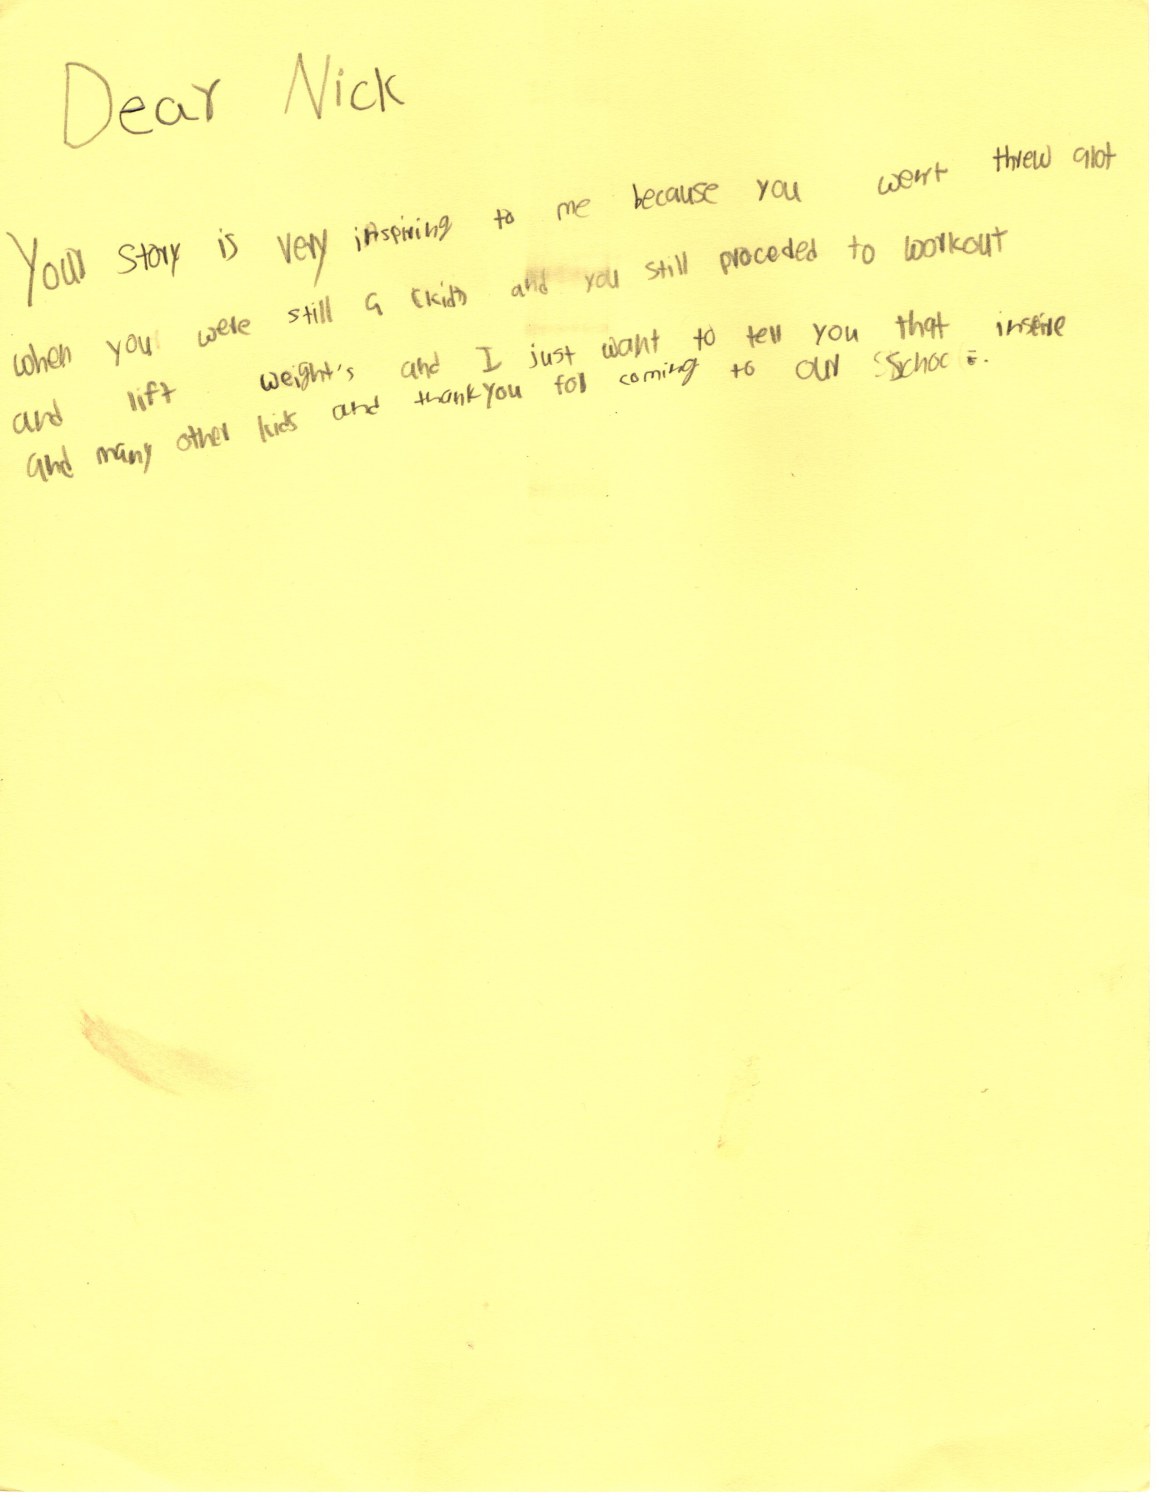 Dear Nick
Your story is very inspiring to me because you went threw alot
when you were still a kid and you still proceded to workout
and lift weight's and I just want to tell you that
and many other kids and thankyou for coming to our